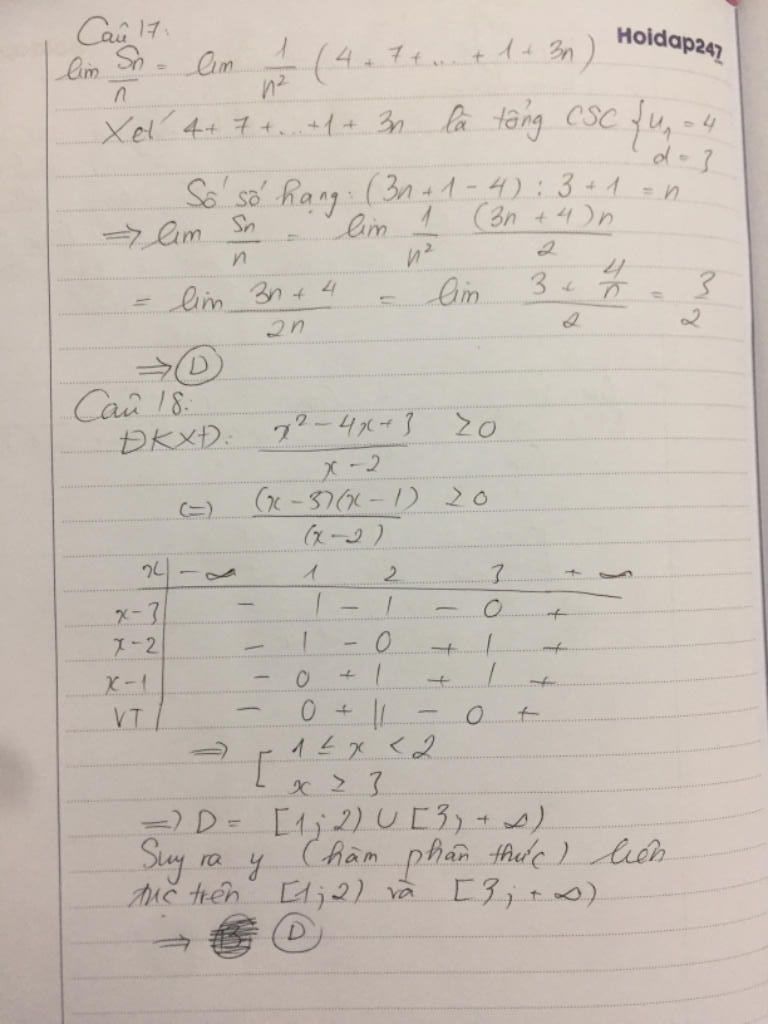 Câu 17:
Hoidap247
lim Sn/n = lim 1/n² (4 + 7 + ... + 1 + 3n)
Xét 4 + 7 + ... + 1 + 3n là tổng CSC { u₁ = 4
d = 3
Số số hạng: (3n + 1 - 4) : 3 + 1 = n
=> lim Sn/n = lim 1/n² (3n + 4)n/2
= lim 3n + 4/2n = lim 3 + 4/n/2 = 3/2
=> D
Câu 18:
ĐKXĐ: x² - 4x + 3/x - 2 ≥ 0
(=) (x - 3)(x - 1)/(x - 2) ≥ 0
x | -∞ 1 2 3 +∞
x-3 | - | - | - 0 +
x-2 | - | - 0 + | +
x-1 | - 0 + | + | +
VT | - 0 + || - 0 +
=> [ 1 ≤ x < 2
x ≥ 3
=> D = [1; 2) ∪ [3; +∞)
Suy ra y (hàm phân thức) liên
tục trên [1; 2) và [3; +∞)
=> D